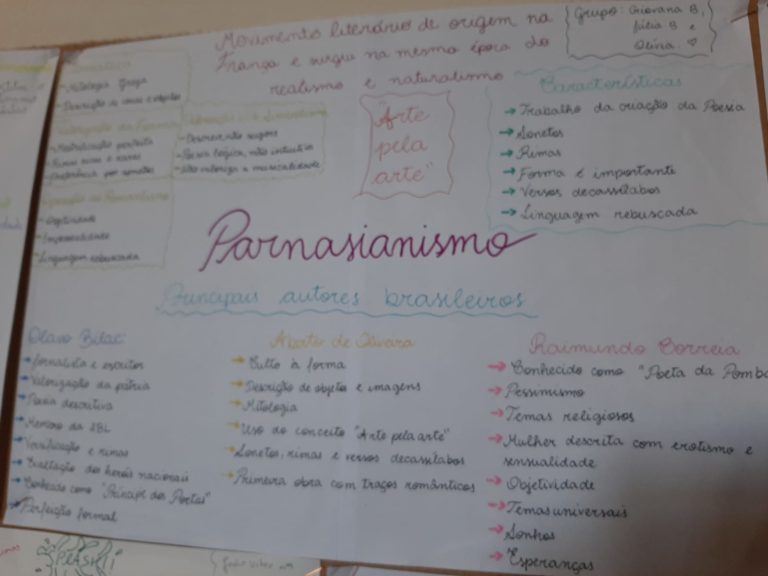 Movimento literário de origem na
França e surgiu na mesma época do
realismo e naturalismo
Grupo: Giovana B,
Júlia B e
Olívia. ♡
- Mitologia Grega
- Descrição de cenas e objetos
Valorização da Forma
- Metrificação perfeita
- Rimas ricas e raras
- Preferência por sonetos
- Descrever não sugerir
- Poesia lógica, não intuitiva
- Não valoriza a musicalidade
- Objetividade
- Impessoalidade
Linguagem rebuscada
"Arte
pela
arte"
Características
→ Trabalho da criação da Poesia
→ Sonetos
→ Rimas
→ Forma é importante
→ Versos decassílabos
→ Linguagem rebuscada
Parnasianismo
Principais autores brasileiros
Olavo Bilac:
→ Jornalista e escritor
→ Valorização da pátria
→ Poesia descritiva
→ Membro da ABL
→ Versificação e rimas
→ Exaltação dos heróis nacionais
→ Conhecido como "Príncipe dos Poetas"
→ Perfeição formal
Alberto de Oliveira
→ Culto à forma
→ Descrição de objetos e imagens
→ Mitologia
→ Uso do conceito "Arte pela arte"
→ Sonetos, rimas e versos decassílabos
→ Primeira obra com traços românticos
Raimundo Correia
→ Conhecido como "Poeta da Pomba
→ Pessimismo
→ Temas religiosos
→ Mulher descrita com erotismo e
sensualidade
→ Objetividade
→ Temas universais
→ Sonhos
→ Esperanças